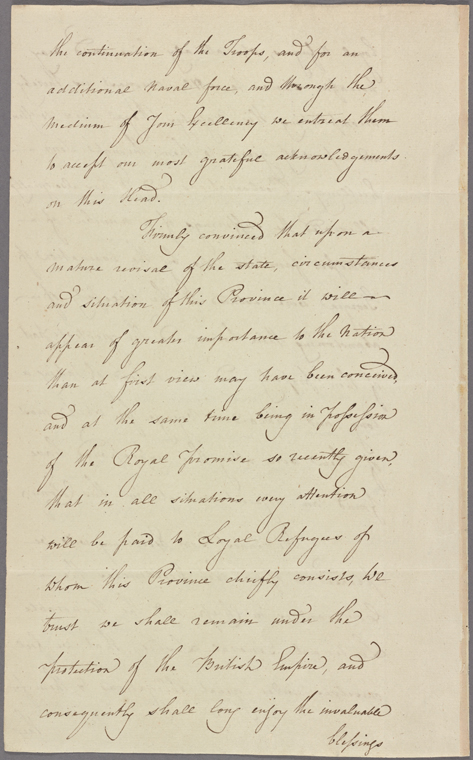 the continuation of the Troops, and for an
additional Naval force, and through the
Medium of Your Excellency we entreat them
to accept our most grateful acknowledgements
on this Head.
Firmly convinced that upon a
mature revisal of the state, circumstances
and situation of this Province it will
appear of greater importance to the Nation
than at first view may have been conceived,
and at the same time being in possession
of the Royal promise so recently given,
that in all situations every attention
will be paid to Loyal Refugees of
whom this Province chiefly consists, We
trust we shall remain under the
protection of the British Empire, and
consequently shall long enjoy the invaluable
blessings